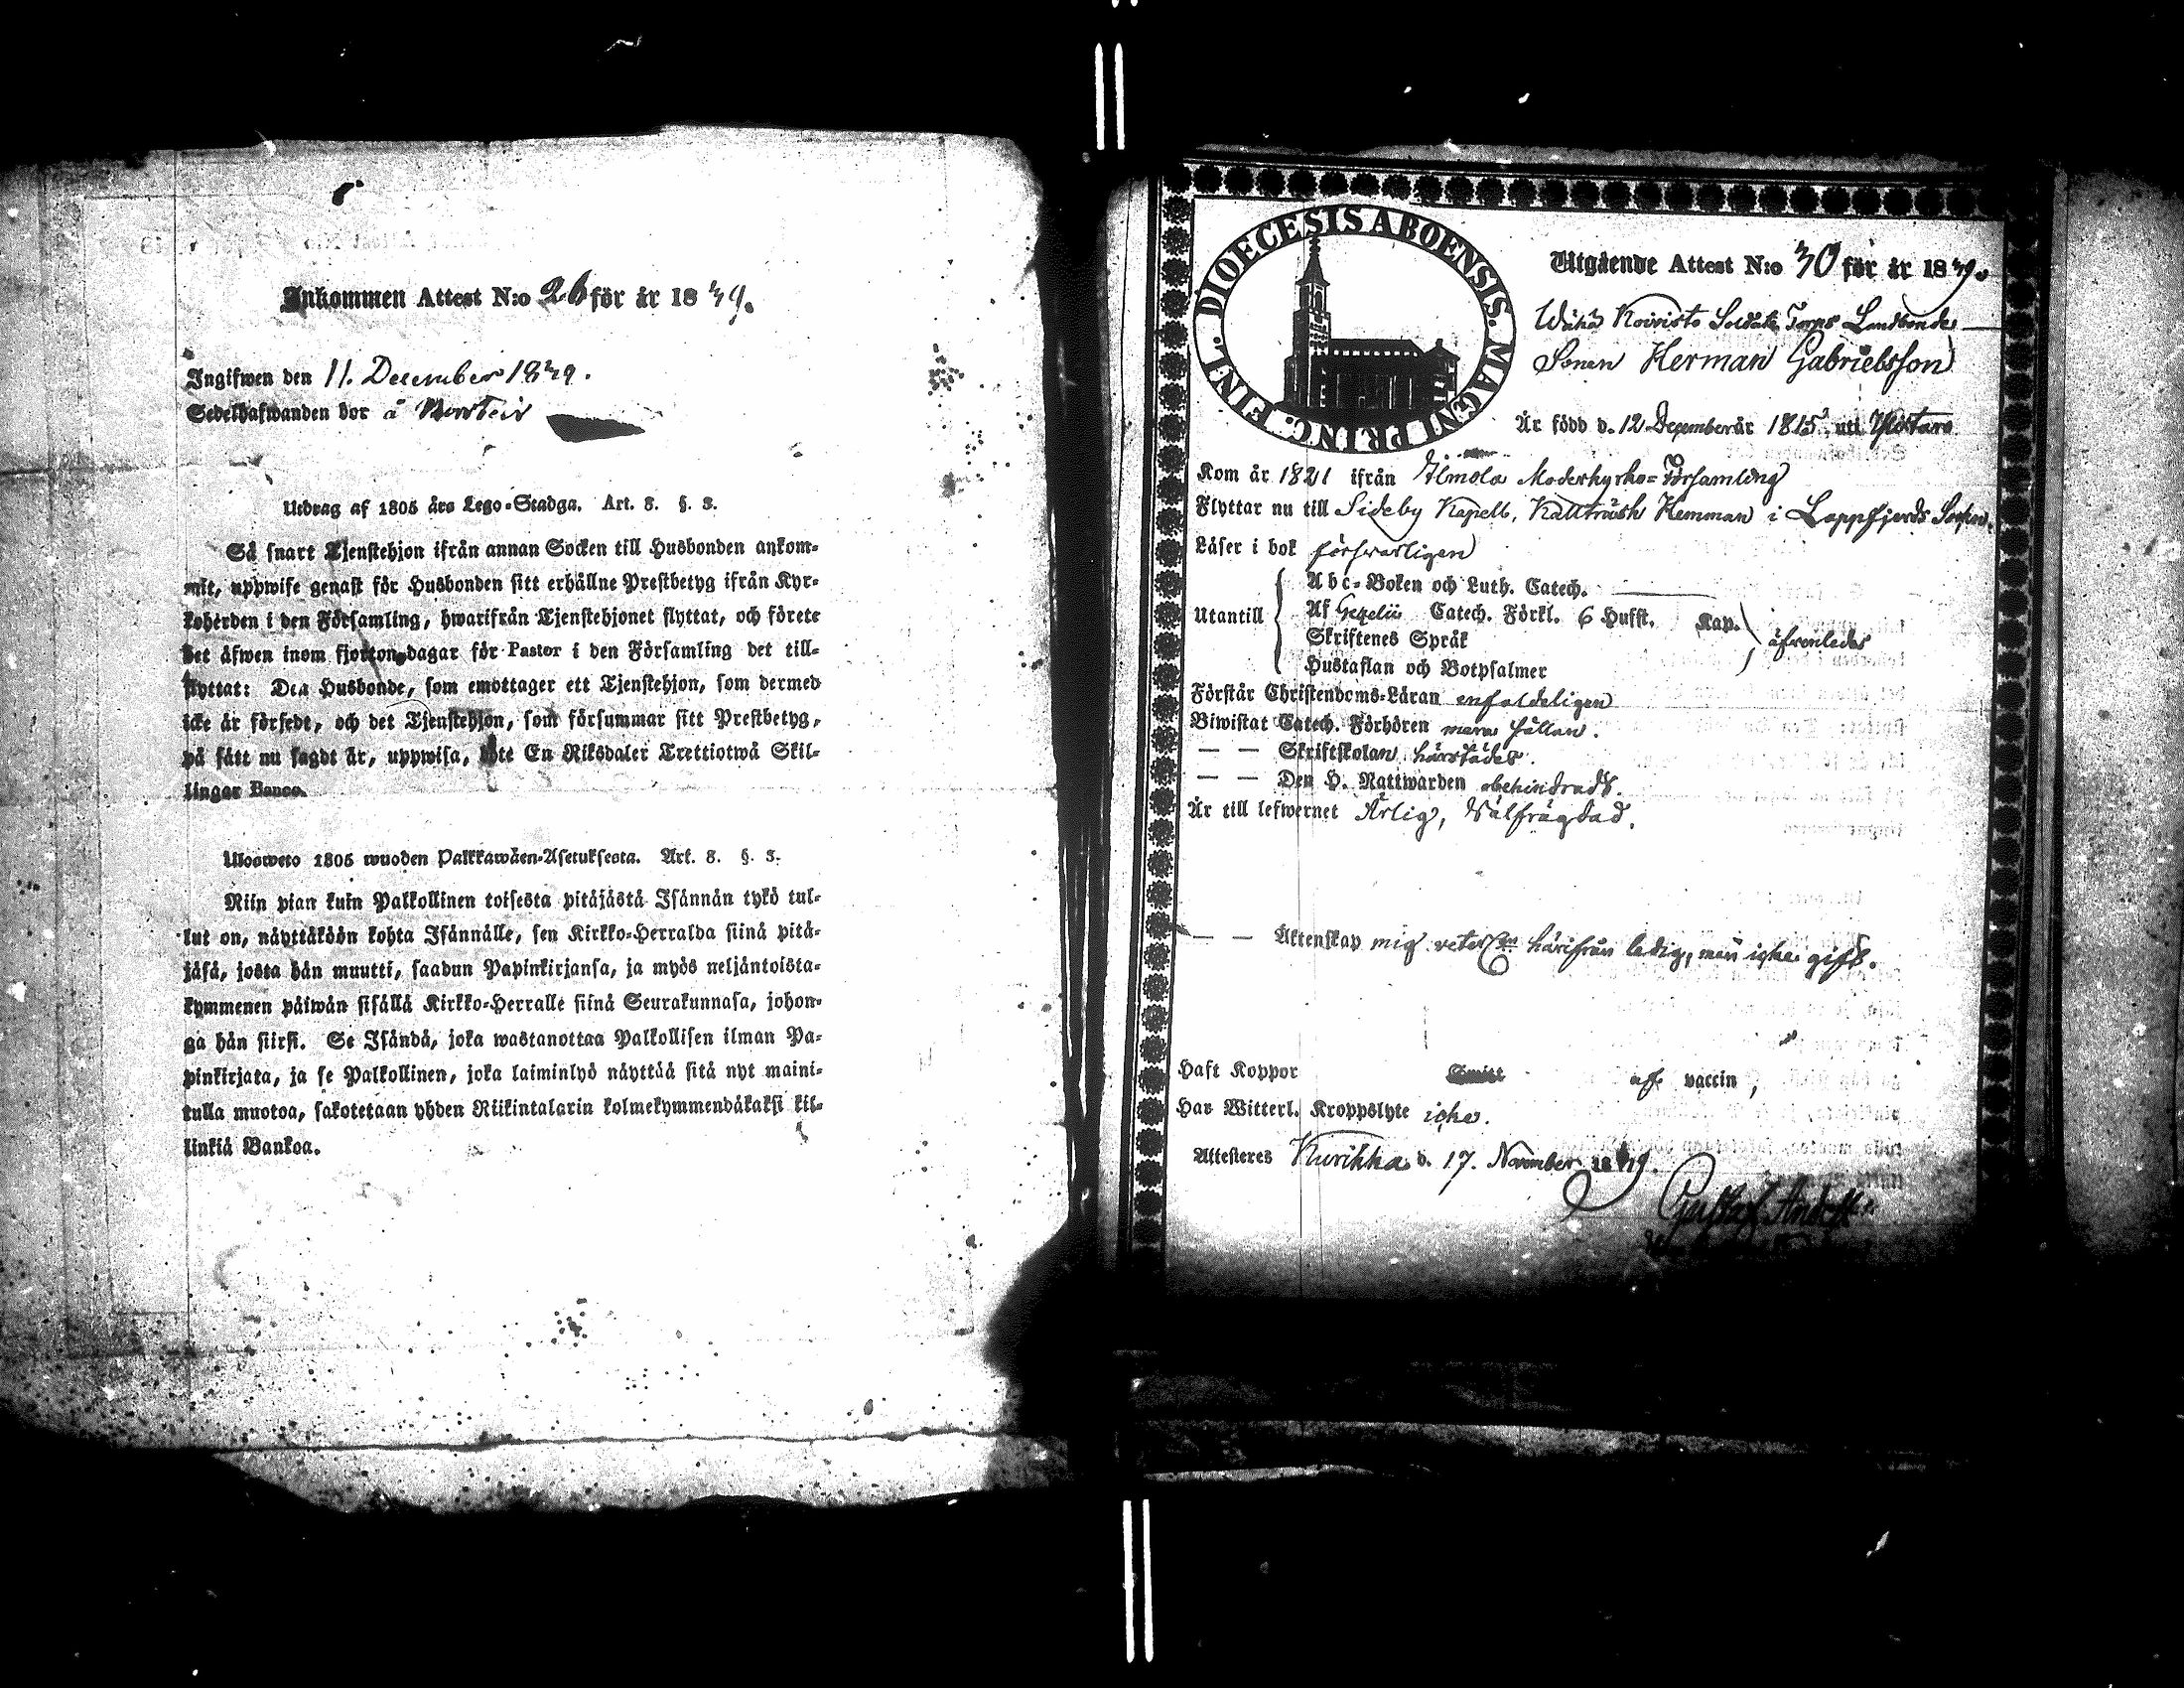 Inkommen Attest N:o 26 för år 1839.
Ingifwen den 11. December 1839.
Sedelhafwanden bor å
Utdrag af 1805 års Lego-Stadga. Art. 8. §. 3.
Så snart Tjenstehjon ifrån annan Socken till Husbonden ankom-
mit, uppwise genast för Husbonden sitt erhållne Prestbetyg ifrån Kyr-
koherden i den Församling, hwarifrån Tjenstehjonet flyttat, och förete
det äfwen inom fjorton dagar för Pastor i den Församling det till-
flyttat: Den Husbonde, som emottager ett Tjenstehjon, som dermed
icke är försedt, och det Tjenstehjon, som försummar sitt Prestbetyg,
på sätt nu sagdt är, uppwisa, böte En Riksdaler Trettiotwå Skil-
lingar Banco.
Uloosweto 1805 wuoden Palkkawäen-Asetuksesta. Art. 8. §. 3.
Niin pian kuin Palkollinen toisesta pitäjästä Isännän tykö tul-
lut on, näyttäköön kohta Isännälle, sen Kirkko-Herralda siinä pitä-
jäsä, josta hän muutti, saadun Papinkirjansa, ja myös neljäntoista-
kymmenen päiwän sisällä Kirkko-Herralle siinä Seurakunnasa, johon-
ga hän siirsi. Se Isändä, joka wastanottaa Palkollisen ilman Pa-
pinkirjata, ja se Palkollinen, joka laiminlyö näyttää sitä nyt maini-
tulla muotoa, sakotetaan yhden Riikintalarin kolmekymmendäkaksi kil-
linkiä Bankoa.
DIOECESIS ABOENSIS. MAGNI PRINC. FINL.
Utgående Attest N:o 30 för år 1839.
Wähä Koivisto Soldats Torps Landbonde
Sonen Herman Gabrielsson
Är född d. 12 December år 1815, uti
Kom år 1821 ifrån Ilmola Moderkyrko-Församling
Flyttar nu till Sideby Kapell, Kallträsk Hemman i Lappfjerds Socken.
Läser i bok försvarligen
Utantill
Abc-Boken och Luth. Catech.
Af Gezelii Catech. Förkl. 6 Hufst. Kap.
Skriftenes Språk
äfvenledes
Hustaflan och Botpsalmer
Förstår Christendoms-Läran enfaldeligen
Biwistat Catech. Förhören mera sällan.
— — Skriftskolan härstädes.
— — Den H. Nattwarden obehindradt.
Är till lefwernet Ärlig, Välfrägdad.
— — Äktenskap mig veterl. härifrån ledig, men icke gift.
Haft Koppor af vaccin,
Har Witterl. Kroppslyte icke.
Attesteres Kurikka d. 17. November 1839.
Gustaf